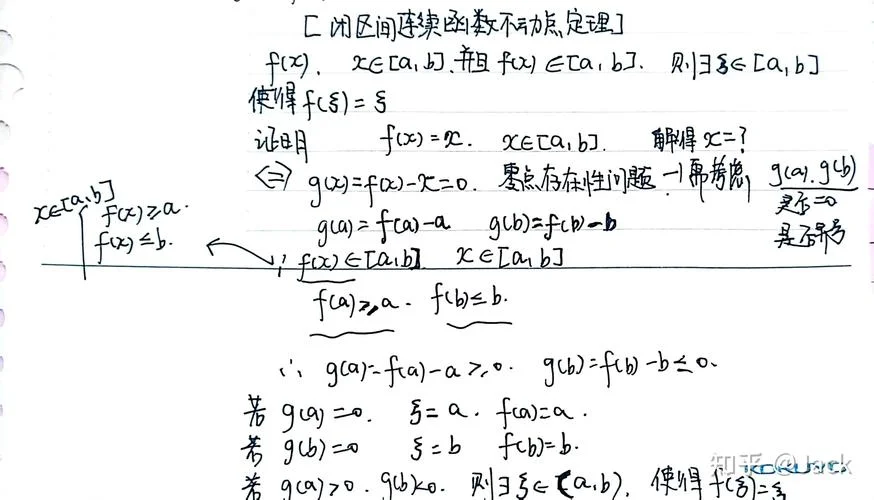 [闭区间连续函数不动点定理]
f(x). x∈[a,b].并且 f(x)∈[a,b]. 则∃ξ∈[a,b]
使得f(ξ)=ξ
证明 f(x)=x. x∈[a,b]. 解得x=?
⇔ g(x)=f(x)-x=0. 零点存在性问题 →需考虑 g(a).g(b)
是否=0
是否异号
g(a)=f(a)-a g(b)=f(b)-b
x∈[a,b]
f(x)≥a.
f(x)≤b.
∵ f(x)∈[a,b] x∈[a,b]
f(a)≥a. f(b)≤b.
∴ g(a)=f(a)-a≥0. g(b)=f(b)-b≤0.
若 g(a)=0. ξ=a. f(a)=a.
若 g(b)=0 ξ=b f(b)=b.
若 g(a)>0. g(b)<0. 则∃ξ∈(a,b), 使得f(ξ)=ξ
知乎 @Jack